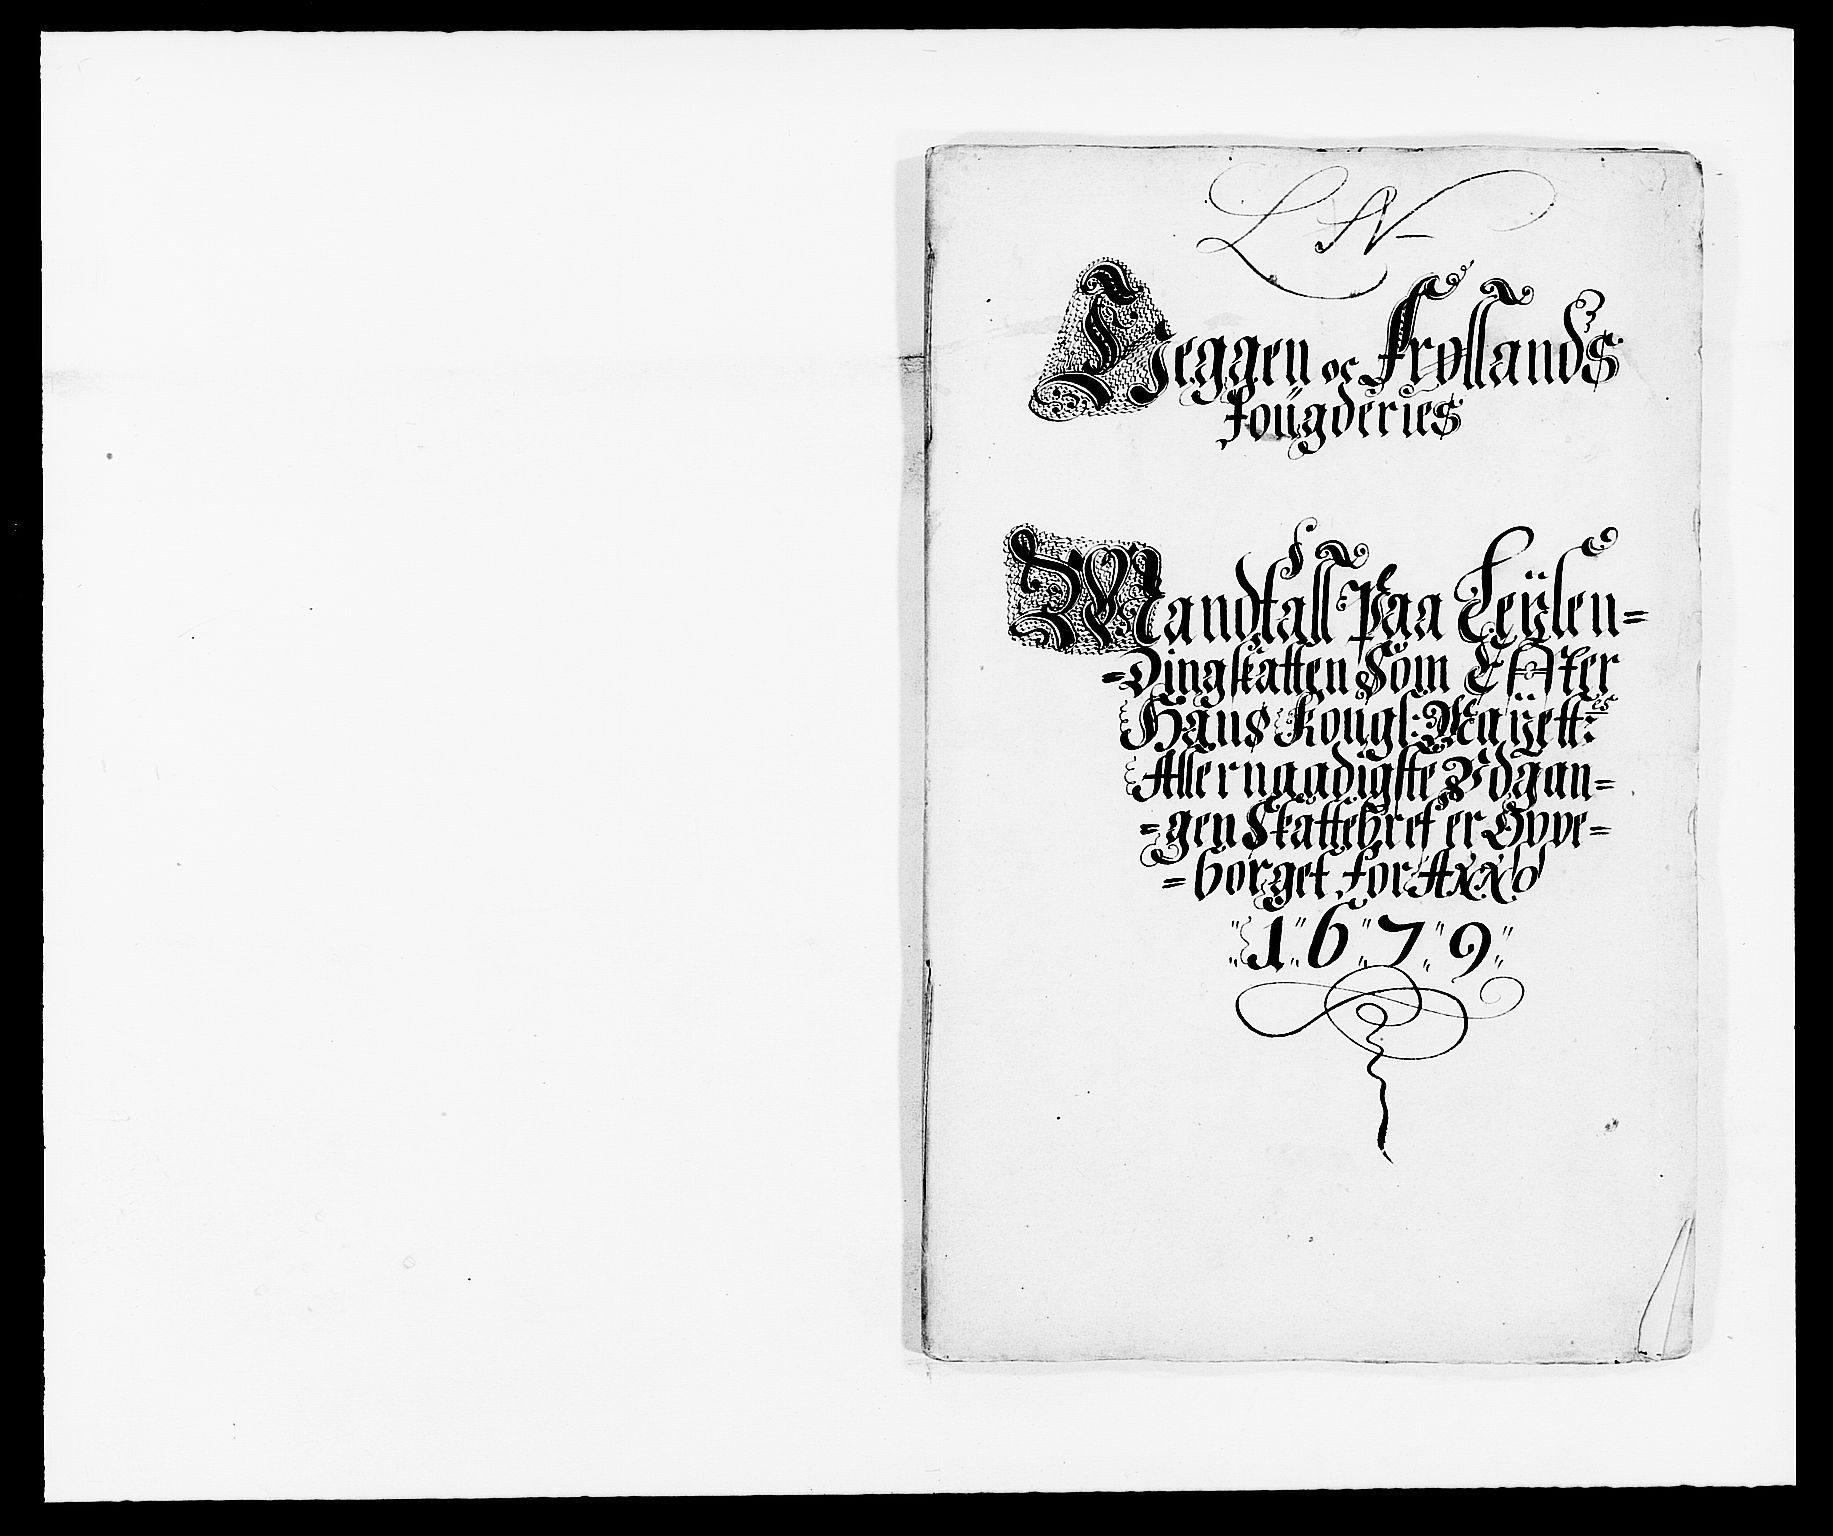 L N
Heggen oc Frøllands
fougderies
Mandtall Paa Leÿlen=
=dingskatten Som Effter
Hans Kongl: Maÿett:ˢ
Allernaadigste Vdgan=
=gen Skattebref er Oppe=
=borget for Axxo
1679